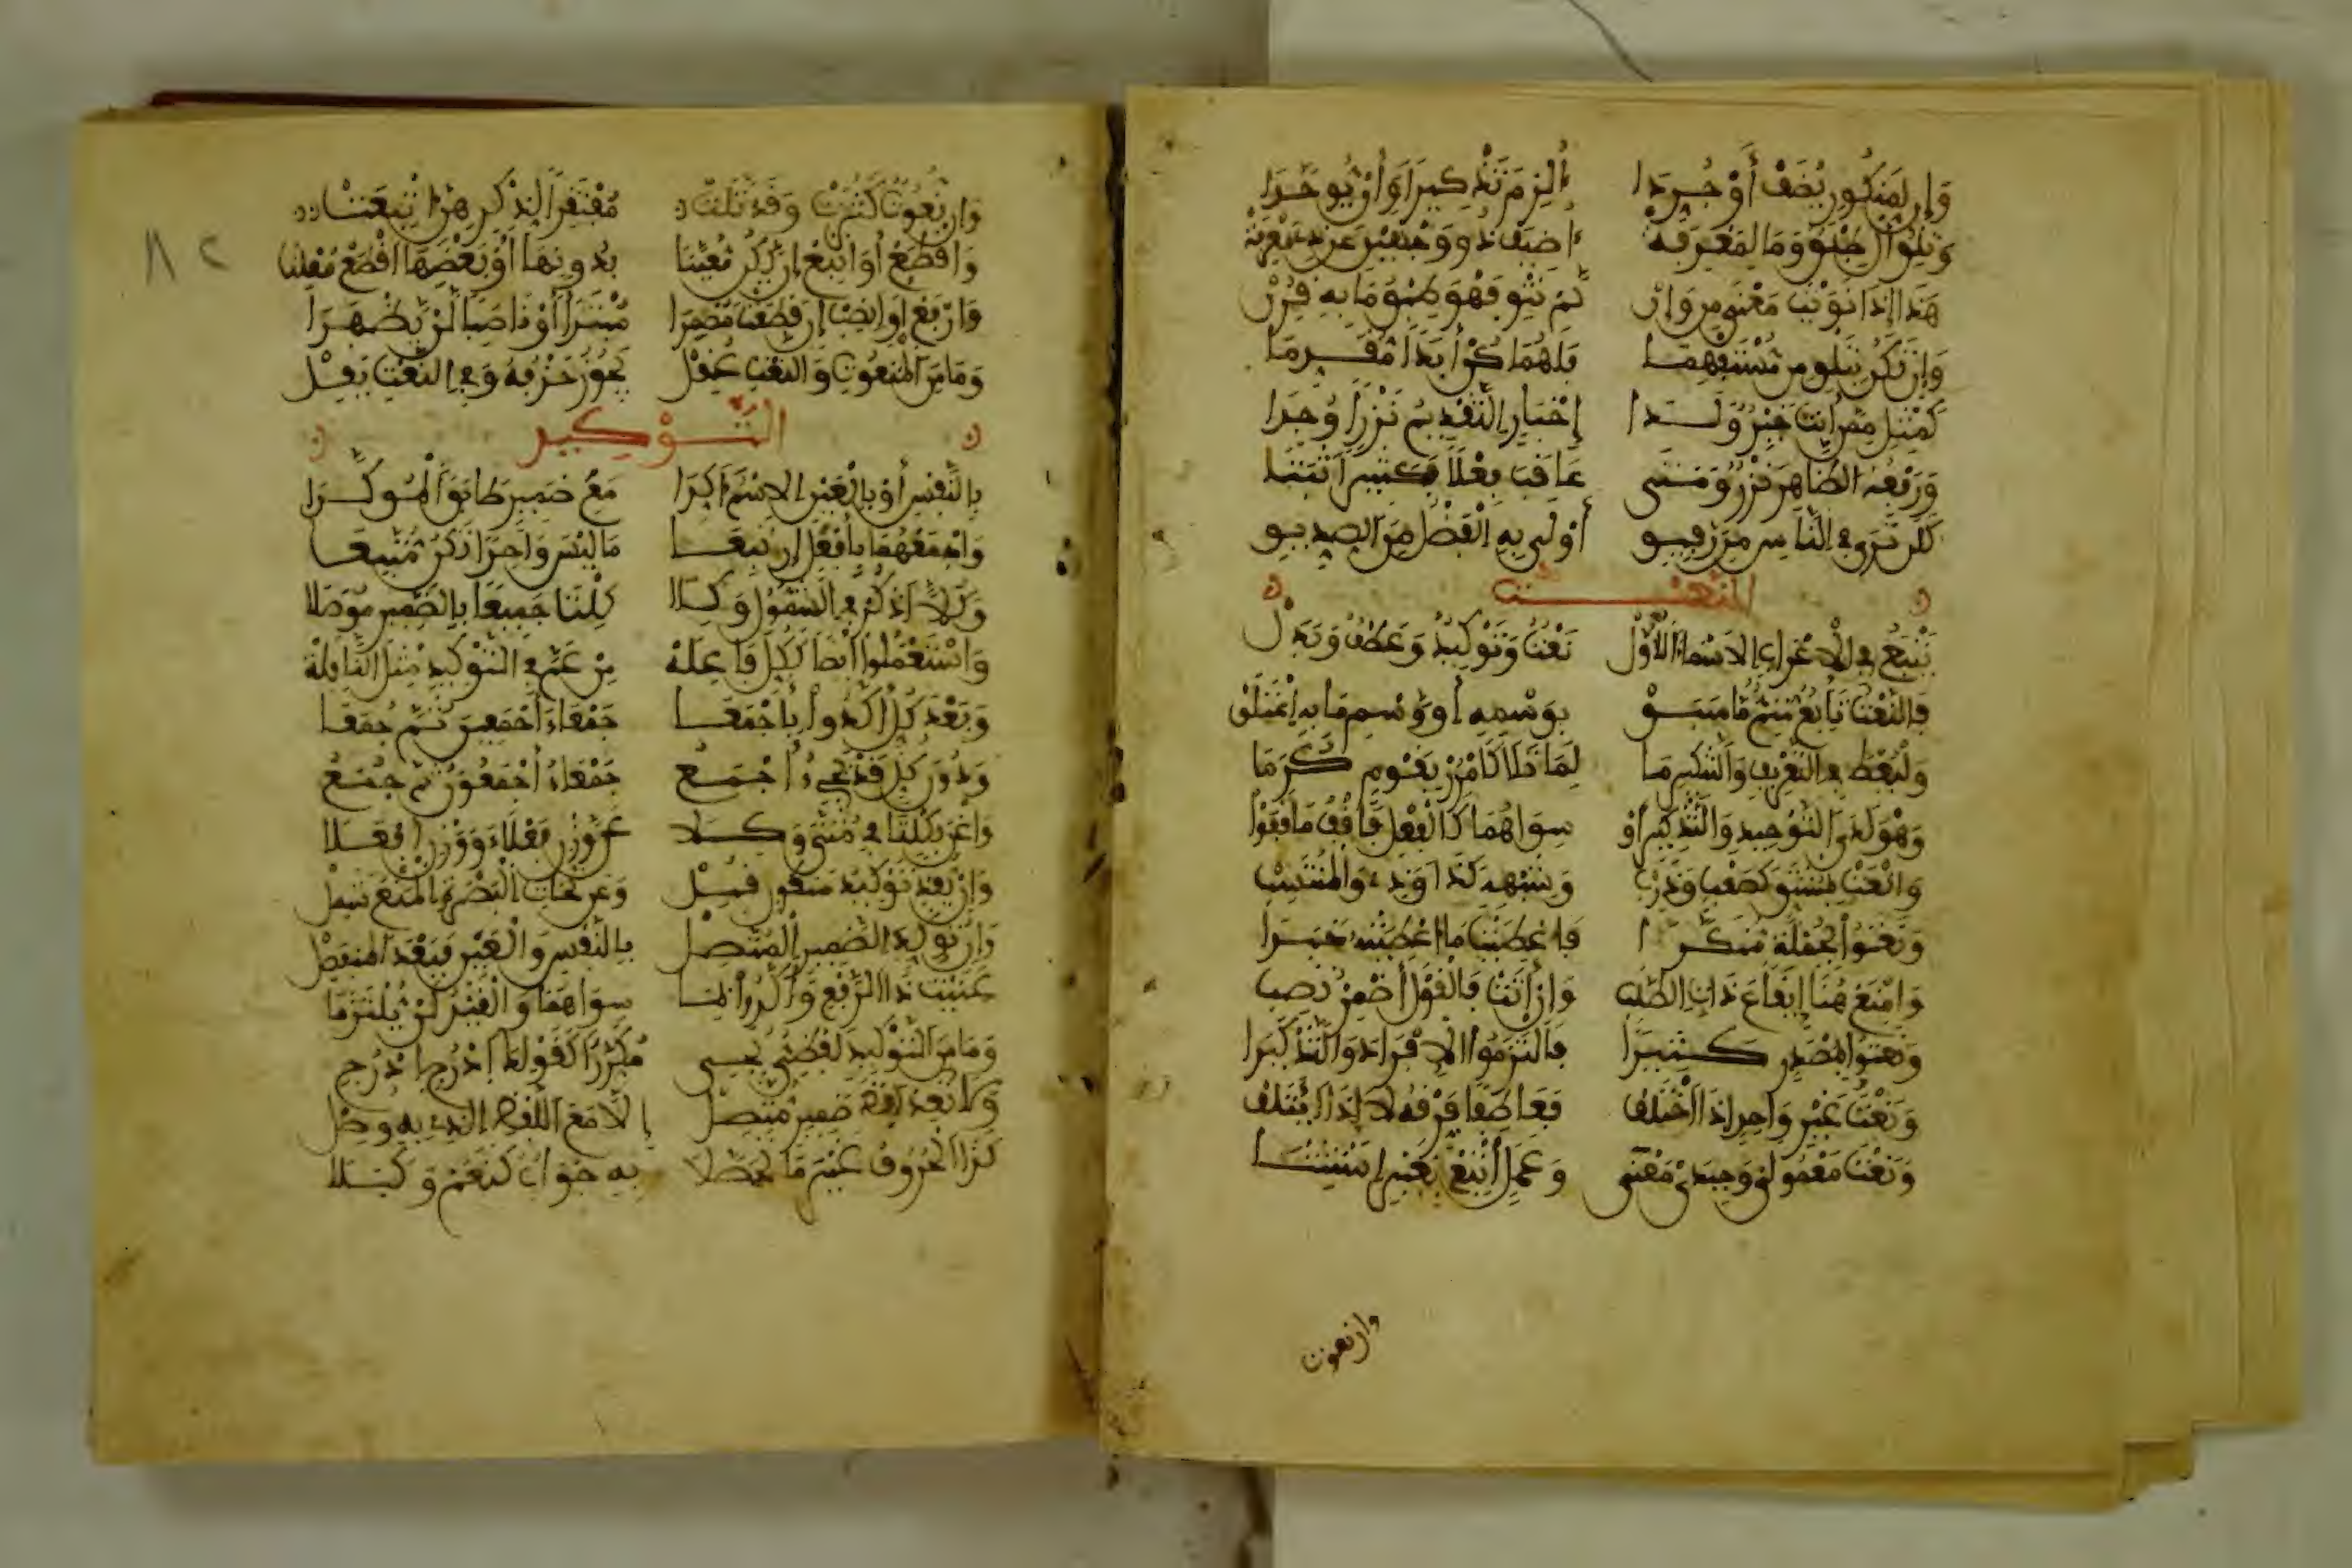 وَإِن لِمَنكُورٍ يُضَفْ أَوْ جُرِّدَا أُلْزِمَ تَذْكِيرًا وَأَنْ يُوَحَّدَا
وَتِلْوُ أَلْ طِبْقٌ وَمَا لِمَعْرِفَهْ أُضِيفَ ذُو وَجْهَيْنِ عَن ذِي مَعْرِفَهْ
هَذَا إِذَا نَوَيْتَ مَعْنَى مِن وَإِنْ لَمْ تَنْوِ فَهْوَ طِبْقُ مَا بِهِ قُرِنْ
وَإِنْ تَكُن بِتِلْوِ مِن مُسْتَفْهِمَا فَلَهُمَا كُنْ أَبَدًا مُقَدِّمَا
كَمِثْلِ مِمَّن أَنتَ خَيْرٌ وَلَدَا إِخْبَارٍ التَّقْدِيمُ نَزْرًا وُجِدَا
وَرَفْعُهُ الظَّاهِرَ نَزْرٌ وَمَتَى عَاقَبَ فِعْلًا فَكَثِيرًا ثَبَتَا
كَلَن تَرَى فِي النَّاسِ مِن رَفِيقِ أَوْلَى بِهِ الْفَضْلُ مِنَ الصِّدِّيقِ
النَّعْت
يَتْبَعُ فِي الْإِعْرَابِ الْأَسْمَاءَ الْأُوَلْ نَعْتٌ وَتَوْكِيدٌ وَعَطْفٌ وَبَدَلْ
فَالنَّعْتُ تَابِعٌ مُتِمٌّ مَا سَبَقْ بِوَسْمِهِ أَوْ وَسْمِ مَا بِهِ اعْتَلَقْ
وَلْيُعْطَ فِي التَّعْرِيفِ وَالتَّنْكِيرِ مَا لِمَا تَلَا كَامْرُرْ بِقَوْمٍ كُرَمَا
وَهْوَ لَدَى التَّوْحِيدِ وَالتَّذْكِيرِ أَوْ سِوَاهُمَا كَالْفِعْلِ فَاقْفُ مَا قَفَوْا
وَانْعَتْ بِمُشْتَقٍّ كَصَعْبٍ وَذَرِبْ وَشِبْهِهِ كَذَا وَذِي وَالْمُنْتَسِبْ
وَنَعَتُوا بِجُمْلَةٍ مُنَكَّرَا فَأُعْطِيَتْ مَا أُعْطِيَتْهُ خَبَرَا
وَامْنَعْ هُنَا إِيقَاعَ ذَاتِ الطَّلَبِ وَإِنْ أَتَتْ فَالْقَوْلَ أَضْمِرْ تُصِبِ
وَنَعَتُوا بِمَصْدَرٍ كَثِيرَا فَالْتَزَمُوا الْإِفْرَادَ وَالتَّذْكِيرَا
وَنَعْتُ غَيْرِ وَاحِدٍ إِذَا اخْتَلَفْ فَعَاطِفًا فَرِّقْهُ لَا إِذَا ائْتَلَفْ
وَنَعْتَ مَعْمُولَيْ وَحِيدَيْ مَعْنَى وَعَمَلٍ أَتْبِعْ بِغَيْرِ اسْتِثْنَا
وإن نعوت
وَإِن نُعُوتٌ كَثُرَتْ وَقَدْ تَلَتْ مُفْتَقِرًا لِذِكْرِهِنَّ أُتْبِعَتْ
وَاقْطَعْ أَوْ أَتْبِعْ إِنْ يَكُن مُعَيَّنَا بِدُونِهَا أَوْ بَعْضَهَا اقْطَعْ مُعْلِنَا
وَارْفَعْ أَوِ انْصِبْ إِن قَطَعْتَ مُضْمِرَا مُبْتَدَأً أَوْ نَاصِبًا لَنْ يَظْهَرَا
وَمَا مِنَ الْمَنْعُوتِ وَالنَّعْتِ عُقِلْ يَجُوزُ حَذْفُهُ وَفِي النَّعْتِ يَقِلْ
التَّوْكِيد
بِالنَّفْسِ أَوْ بِالْعَيْنِ الِاسْمُ أُكِّدَا مَعَ ضَمِيرٍ طَابَقَ الْمُؤَكَّدَا
وَاجْمَعْهُمَا بِأَفْعُلٍ إِن تَبِعَا مَا لَيْسَ وَاحِدًا تَكُنْ مُتَّبِعَا
وَكُلًّا اذْكُرْ فِي الشُّمُولِ وَكِلَا كِلْتَا جَمِيعًا بِالضَّمِيرِ مُوصَلَا
وَاسْتَعْمَلُوا أَيْضًا كَكُلٍّ فَاعِلَهْ مِنْ عَمَّ فِي التَّوْكِيدِ مِثْلَ النَّافِلَهْ
وَبَعْدَ كُلٍّ أَكَّدُوا بِأَجْمَعَا جَمْعَاءَ أَجْمَعِينَ ثُمَّ جُمَعَا
وَدُونَ كُلٍّ قَدْ يَجِيءُ أَجْمَعُ جَمْعَاءُ أَجْمَعُونَ ثُمَّ جُمَعُ
وَاغْنَ بِكِلْتَا فِي مُثَنًّى وَكِلَا عَن وَزْنِ فَعْلَاءَ وَوَزْنِ أَفْعَلَا
وَإِنْ يُفِدْ تَوْكِيدُ مَنكُورٍ قُبِلْ وَعَن نُحَاةِ الْبَصْرَةِ الْمَنْعُ شَمِلْ
وَإِنْ تُؤَكِّدِ الضَّمِيرَ الْمُتَّصِلْ بِالنَّفْسِ وَالْعَيْنِ فَبَعْدَ الْمُنفَصِلْ
عَنَيْتُ ذَا الرَّفْعِ وَأَكَّدُوا بِمَا سِوَاهُمَا وَالْقَيْدُ لَنْ يُلْتَزَمَا
وَمَا مِنَ التَّوْكِيدِ لَفْظِيٌّ يَجِي مُكَرَّرًا كَقَوْلِكَ ادْرُجِي ادْرُجِي
وَلَا تُعِدْ لَفْظَ ضَمِيرٍ مُتَّصِلْ إِلَّا مَعَ اللَّفْظِ الَّذِي بِهِ وُصِلْ
كَذَا الْحُرُوفُ غَيْرَ مَا تَحَصَّلَا بِهِ جَوَابٌ كَنَعَمْ وَكَبَلَا